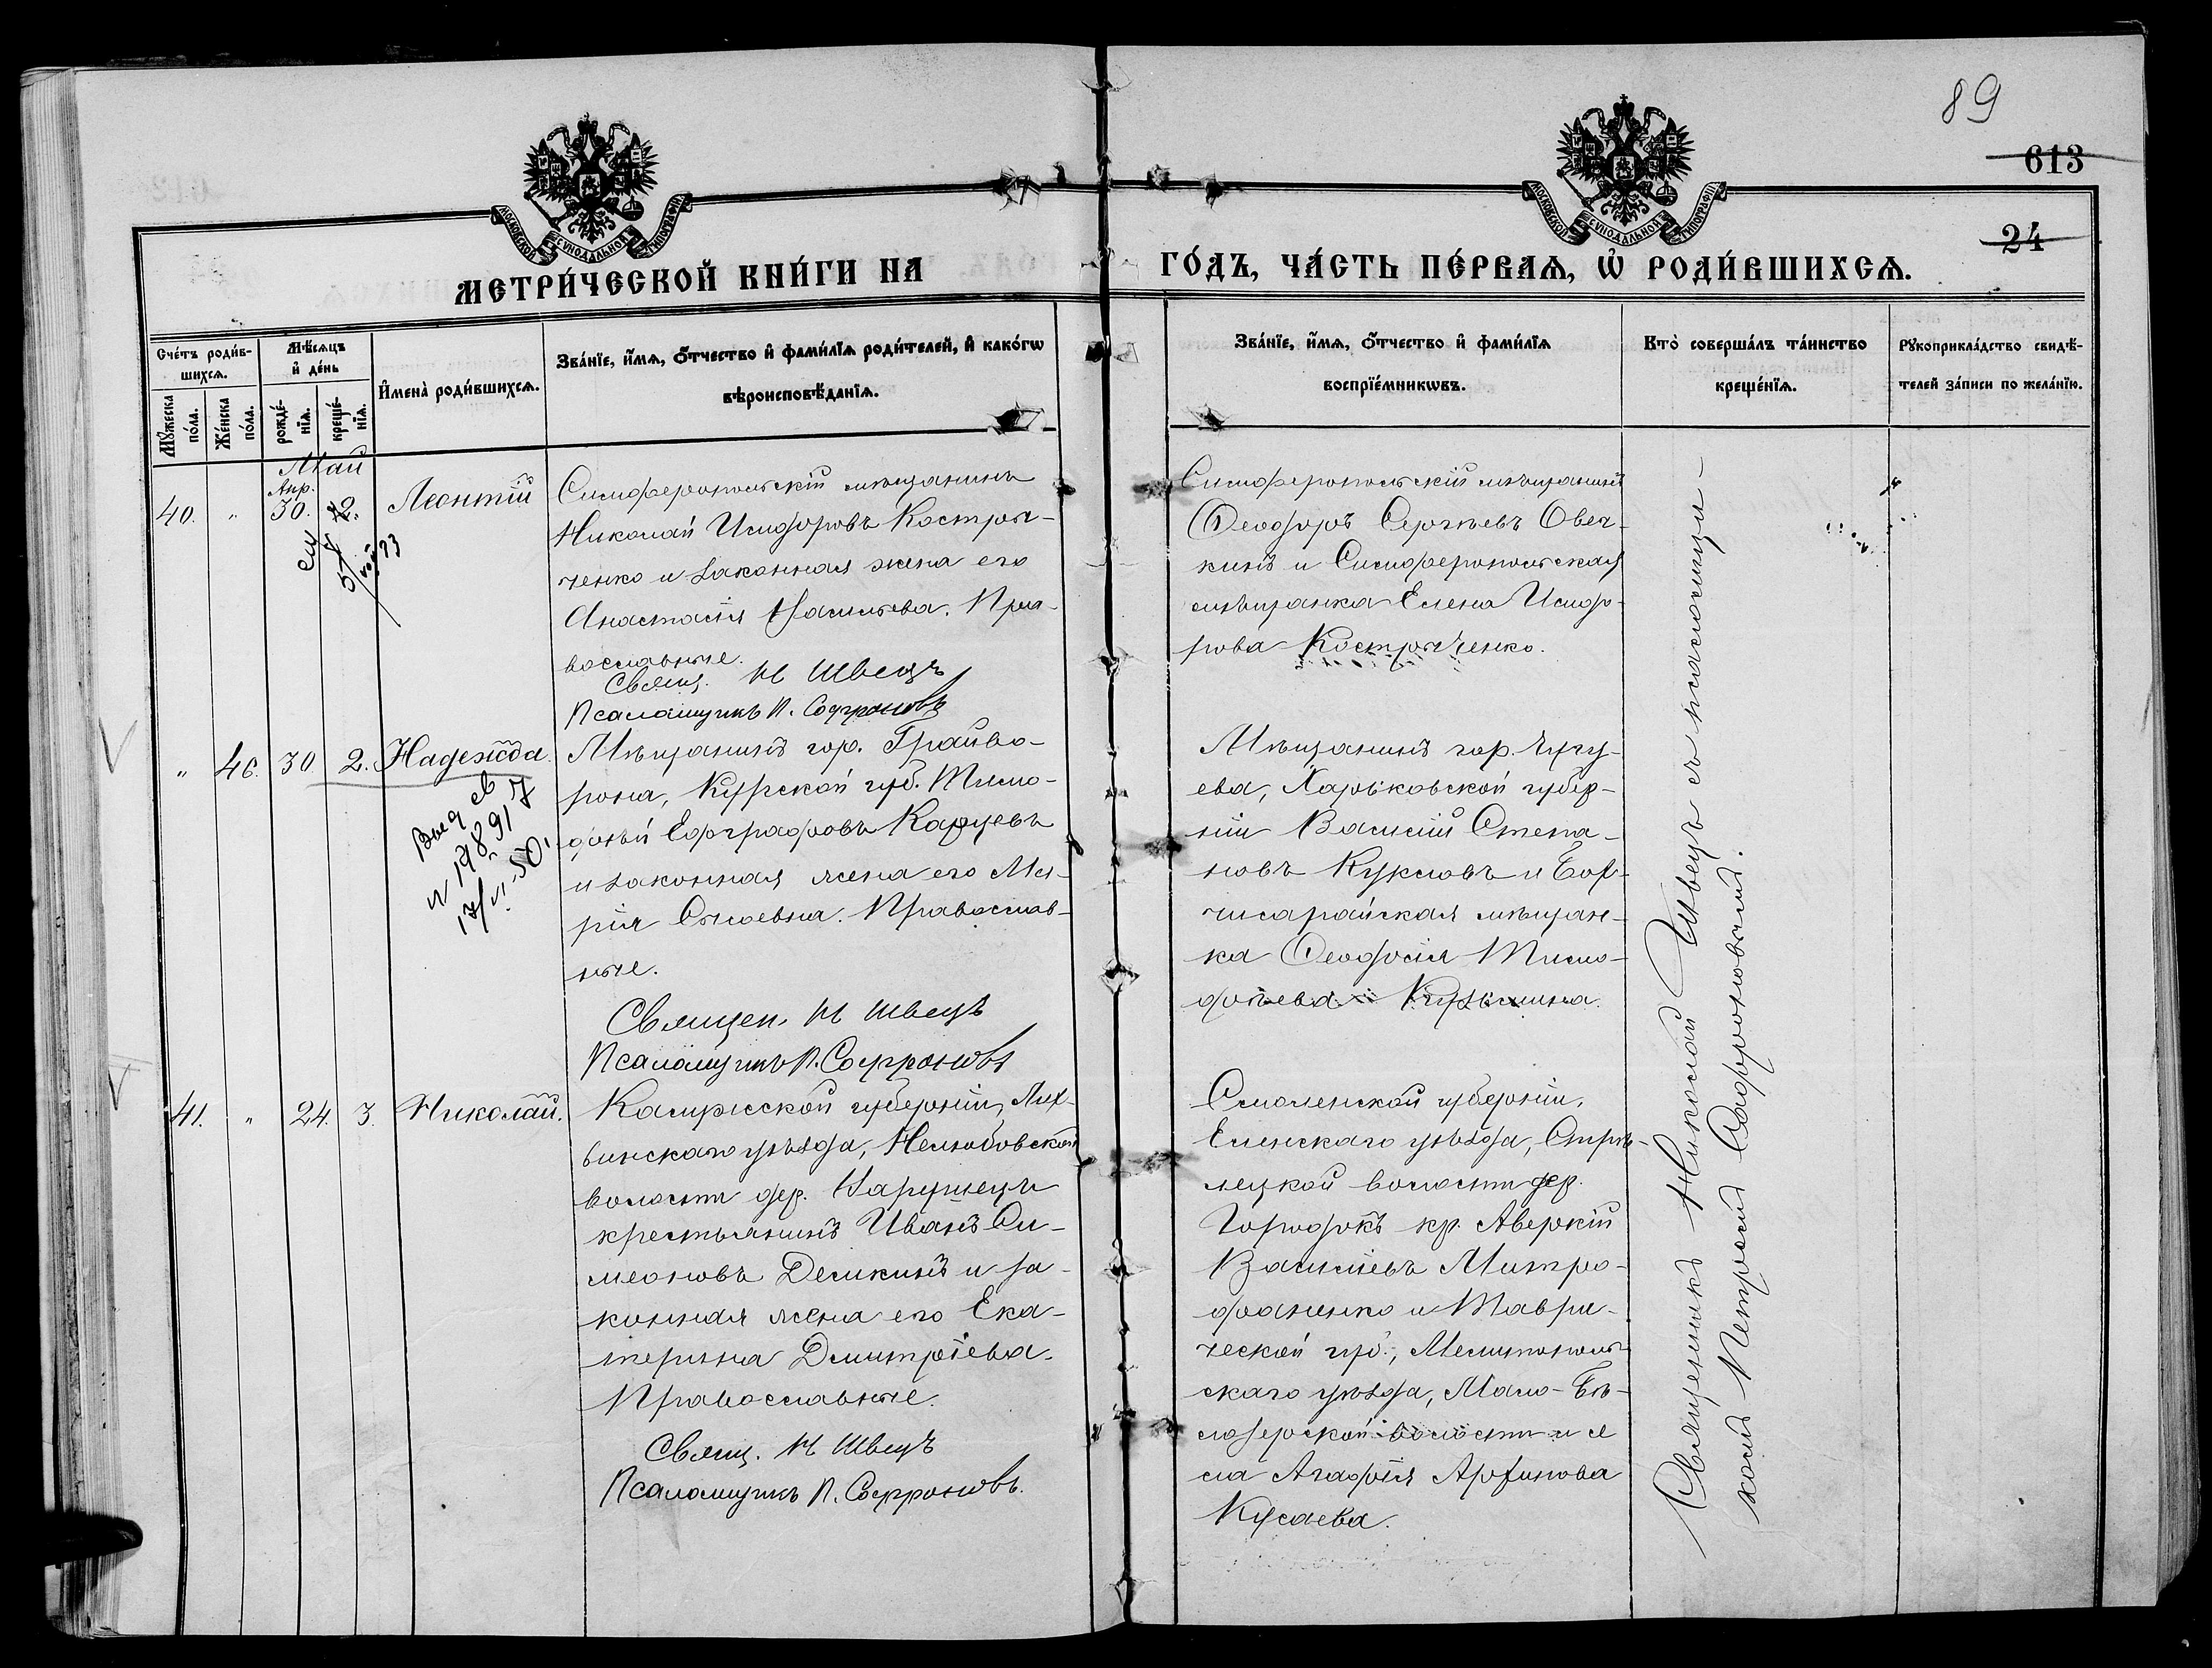 89
613
24
МОСКОВСКОЙ СѴНОДАЛЬНОЙ ТИПОГРАФІИ
МОСКОВСКОЙ СѴНОДАЛЬНОЙ ТИПОГРАФІИ
МЕТРИ́ЧЕСКОЙ КНИ́ГИ НА
ГО́ДЪ, ЧА́СТЬ ПЕ́РВАѦ, Ѡ҆ РОДИ́ВШИХСѦ.
Сче́тъ роди́в-
шихсѧ.
Мꙋ́жеска
по́ла.
Же́нска
по́ла.
Мѣ́сѧцъ
и҆ де́нь
рожде́-
нїѧ.
креще́-
нїѧ.
И҆мена̀ роди́вшихсѧ.
Зва́нїе, и҆́мѧ, ѻ҆́тчество и҆ фами́лїѧ роди́телей, и҆ како́гѡ
вѣроисповѣ́данїѧ.
Зва́нїе, и҆́мѧ, ѻ҆́тчество и҆ фами́лїѧ
воспрїе́мникѡвъ.
Кто̀ соверша́лъ та́инство
креще́нїѧ.
Рꙋкоприкла́дство свидѣ́-
телей за́писи по жела́нїю.
Май
Апр.
40. " 30. 2. Леонтій
Симферопольскій мѣщанинъ
Николай Исидоровъ Костри-
ченко и законная жена его
Анастасія Васильева. Пра-
вославные.
Свящ. Н Швецъ
Псаломщикъ П. Софроновъ
Симферопольскій мѣщанинъ
Ѳеодоръ Сергѣевъ Овеч-
кинъ и Симферопольская
мѣщанка Елена Исидо-
рова Костриченко.
" 40. 30 2. Надежда.
Выд св
N 19891
17/VI-50.
Мѣщанинъ гор. Грайво-
рона, Курской губ. Тимо-
фей Евграфовъ Карцевъ
и законная жена его Ма-
рія Сысоевна. Православ-
ные.
Священ. Н Швецъ
Псаломщикъ П. Софроновъ
Мѣщанинъ гор. Чугу-
ева, Харьковской губер-
ніи Василій Степа-
новъ Куксовъ и Бах-
чисарайская мѣщан-
ка Ѳеодосія Тимо-
фѣева Кузьмина.
41. " 24. 3. Николай.
Калужской губерніи, Лих-
винскаго уѣзда, Нелюбовской
волости дер.
крестьянинъ Иванъ Си-
меоновъ Демкинъ и за-
конная жена его Ека-
терина Дмитріева.
Православные.
Свящ. Н Швецъ
Псаломщикъ П. Софроновъ.
Смоленской губерніи,
Ельнскаго уѣзда, Стрѣ-
лецкой волости дер.
Городокъ кр. Аверкій
Василіевъ Митро-
фаненко и Таври-
ческой губ., Мелитополь-
скаго уѣзда, Мало-Бѣ-
лозерской волости и се
ла Агафія
Кусаева.
Священникъ Николай Швецъ съ псаломщи-
комъ Петромъ Софроновымъ.